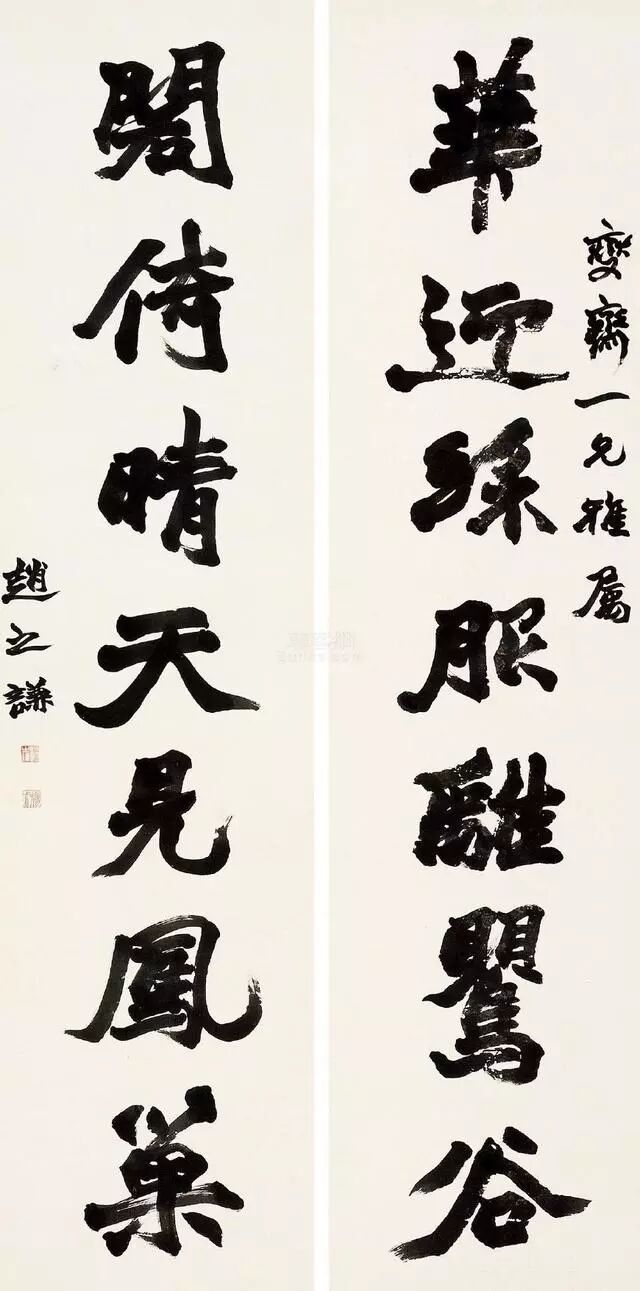 華迎綵服離鸎谷
燮齋一兄雅屬
閣倚晴天見鳳巢
趙之謙